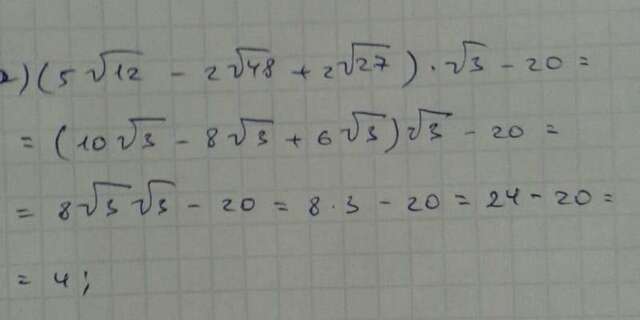 2) (5√12 - 2√48 + 2√27) · √3 - 20 =
= (10√3 - 8√3 + 6√3)√3 - 20 =
= 8√3√3 - 20 = 8·3 - 20 = 24 - 20 =
= 4;